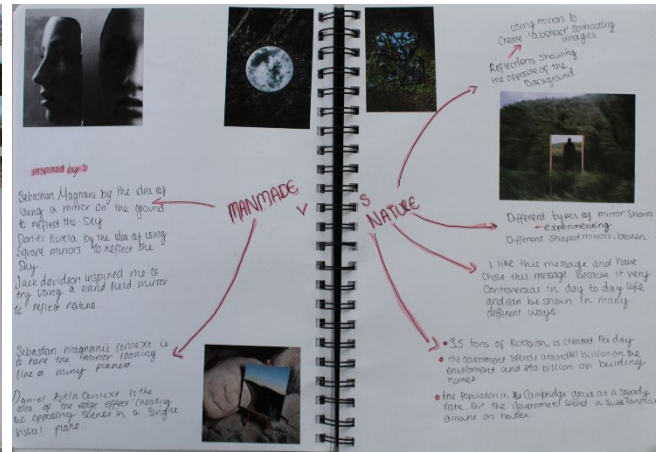 inspired by:
Sebastian Magnani by the idea of
using a mirror on the ground
to reflect the sky
Daniel Kukla by the idea of using
square mirrors to reflect the
sky.
Jack davidson inspired me to
try using a hand held mirror
to reflect nature.
Sebastian magnani's context is
to have the mirror looking
like a mini planet.
Daniel Kukla context is the
idea of the edge effect creating
two opposing scenes in a single
visual plane.
MANMADE
V
S
NATURE
using mirrors to
create 'abstract' contrasting
images
Reflections showing
the opposite of the
background.
Different types of mirror shards
- experimenting
Different shaped mirrors, broken.
I like this message and have
chose this message because it very
controversial in day to day life
and can be shown in many
different ways
• 3.5 tons of Rubbish is created per day
• the government spends around billion on the
enviroment and billion on building
homes
• the population in Cambridge grows at a steady
rate. but the government spend a
amount on houses